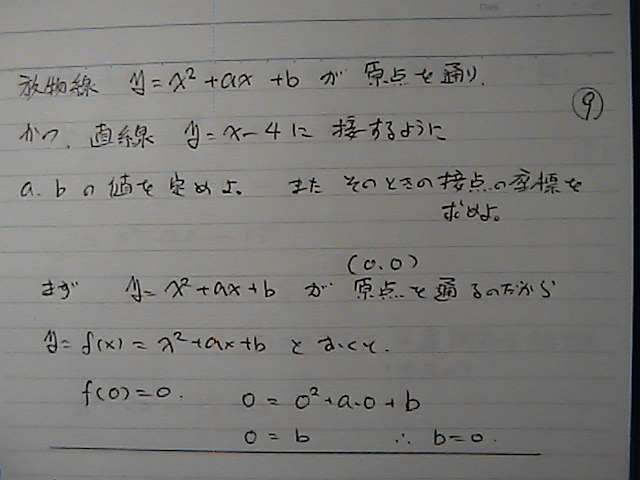 放物線 y=x²+ax+b が 原点を通り、
⑨
かつ、直線 y=x-4に 接するように
a、bの値を定めよ。 また そのときの接点の座標を
求めよ。
(0.0)
まず y=x²+ax+b が 原点を通るのだから
y=f(x)=x²+ax+b とおくと、
f(0)=0. 0=0²+a.0+b
0=b ∴ b=0.